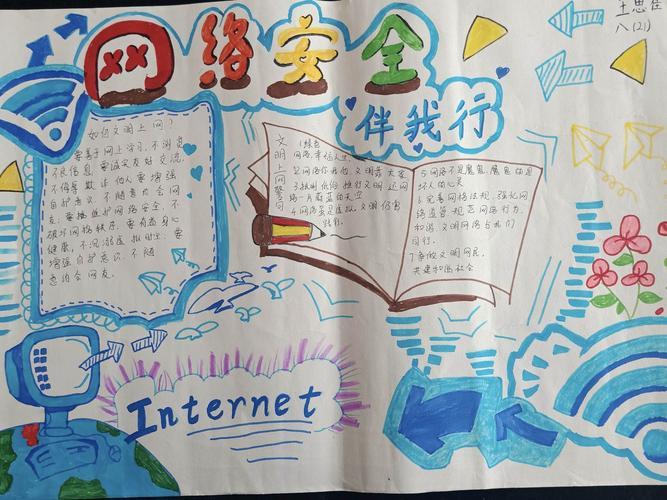 网络安全
伴我行
王思佳
八(21)
如何文明上网?
要善于网上学习,不浏览
不良信息。要诚实友好交流,
不侮辱欺诈他人要增强
自护意识,不随意约会网
友;要维护网络安全,不
破坏网络秩序。要有益身心
健康,不沉溺虚拟时空;要
增强自护意识,不随
意约会网友。
文明上网警句
1.绿色
网络,幸福人生。
2.网络你我他,文明靠大家
4.网络虽是虚拟,文明仍需
5.网络不是魔鬼,魔鬼的是
坏人的心灵
6.完善网络法规,强化网
络监管,规范网络行为,
和谐,文明网络与我们
同行。
7.争做文明网民,
共建和谐社会
Internet